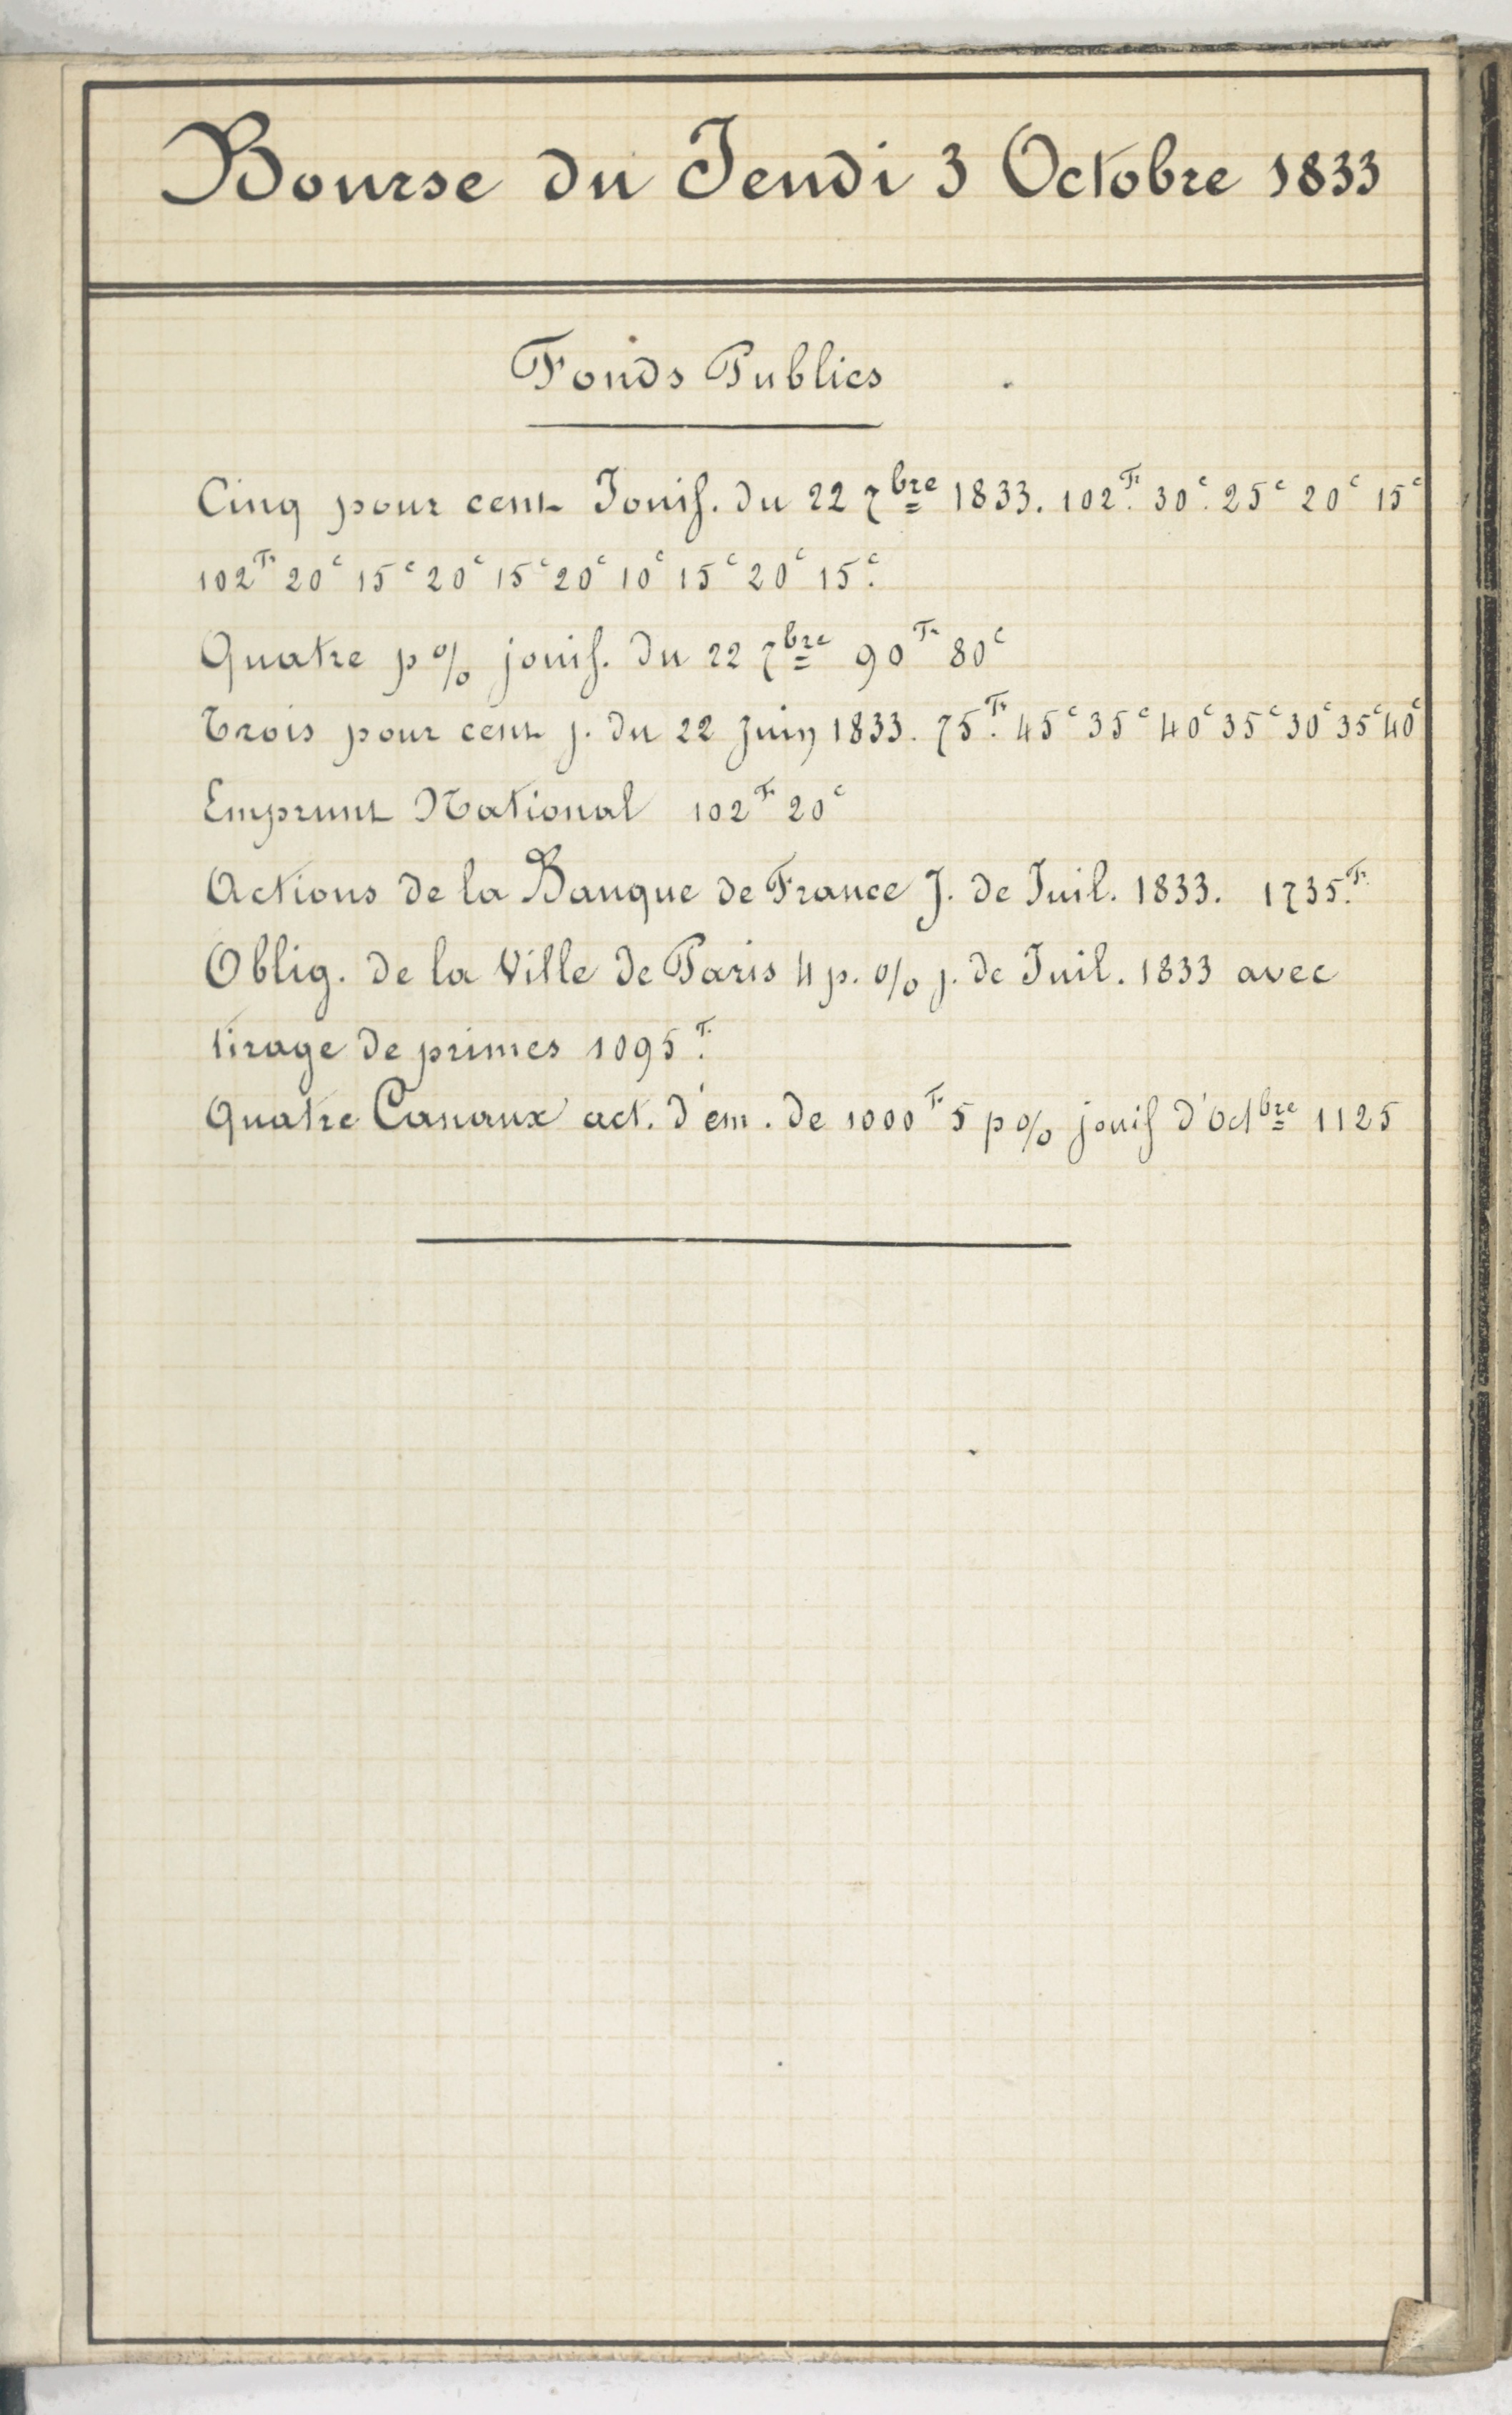 Bourse du Jeudi 3 Octobre 1833
Fonds Publics
Cinq pour cent Jouis. du 22 7bre 1833. 102F. 30c. 25c 20c 15c
102F 20c 15c 20c 15c 20c 10c 15c 20c 15c.
Quatre p % jouis. du 22 7bre 90F 80c
Trois pour cent j. du 22 Juin 1833. 75F. 45c 35c 40c 35c 30c 35c 40c
Emprunt National 102F 20c
Actions de la Banque de France J. de Juil. 1833. 1735F.
Oblig. de la Ville de Paris 4 p. % j. de Juil. 1833 avec
tirage de primes 1095F.
Quatre Canaux act. d'em. de 1000F 5 p % jouis d'Octbre 1125